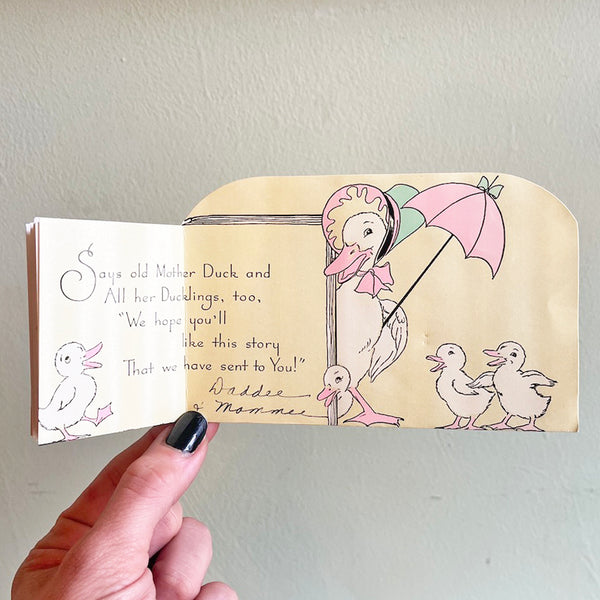 Says old Mother Duck and
All her Ducklings, too,
"We hope you'll
like this story
That we have sent to You!"
Daddee
& Mommee